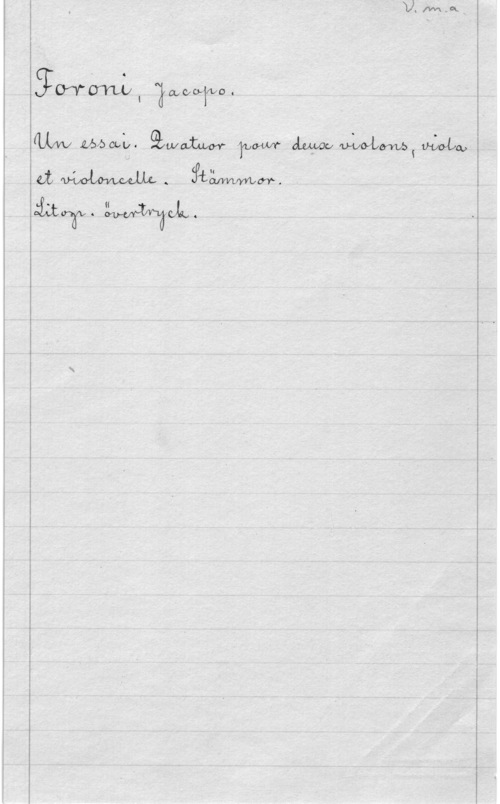 V. m. a.
Foroni, Jacopo.
Un essai. Quatuor pour deux violons, viola
et violoncelle. Stämmor.
Litogr. övertryck.